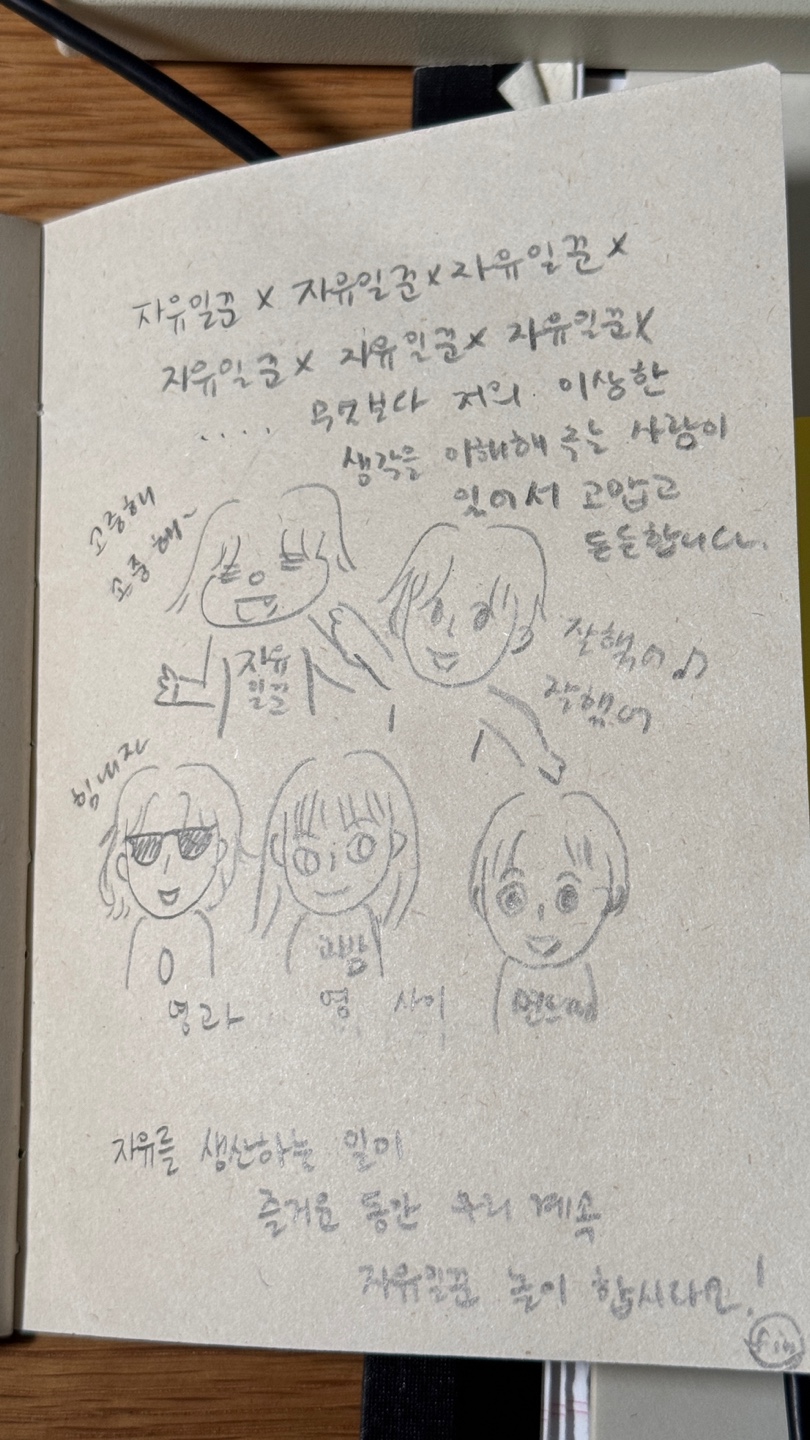 자유일꾼 x 자유일꾼 x 자유일꾼 x
자유일꾼 x 자유일꾼 x 자유일꾼 x
.... 무엇보다 저의 이상한
생각을 이해해 주는 사람이
있어서 고맙고
든든합니다.
소중해
소중해~
자유
일꾼
잘했어♪
잘했어
힘내자
영과
영 사이
자유를 생산하는 일이
즐거운 동안 우리 계속
자유일꾼 놀이 합시다요!
fin